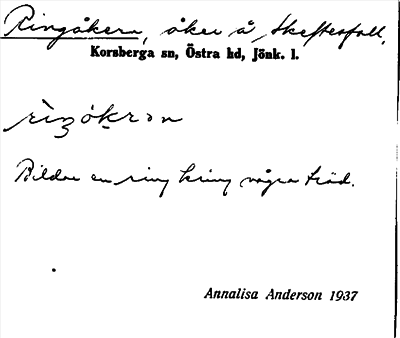 Ringåkern, åker å Skeftesfall,
Korsberga sn, Östra hd, Jönk. l.
Bildar en ring kring några träd.
Annalisa Anderson 1937